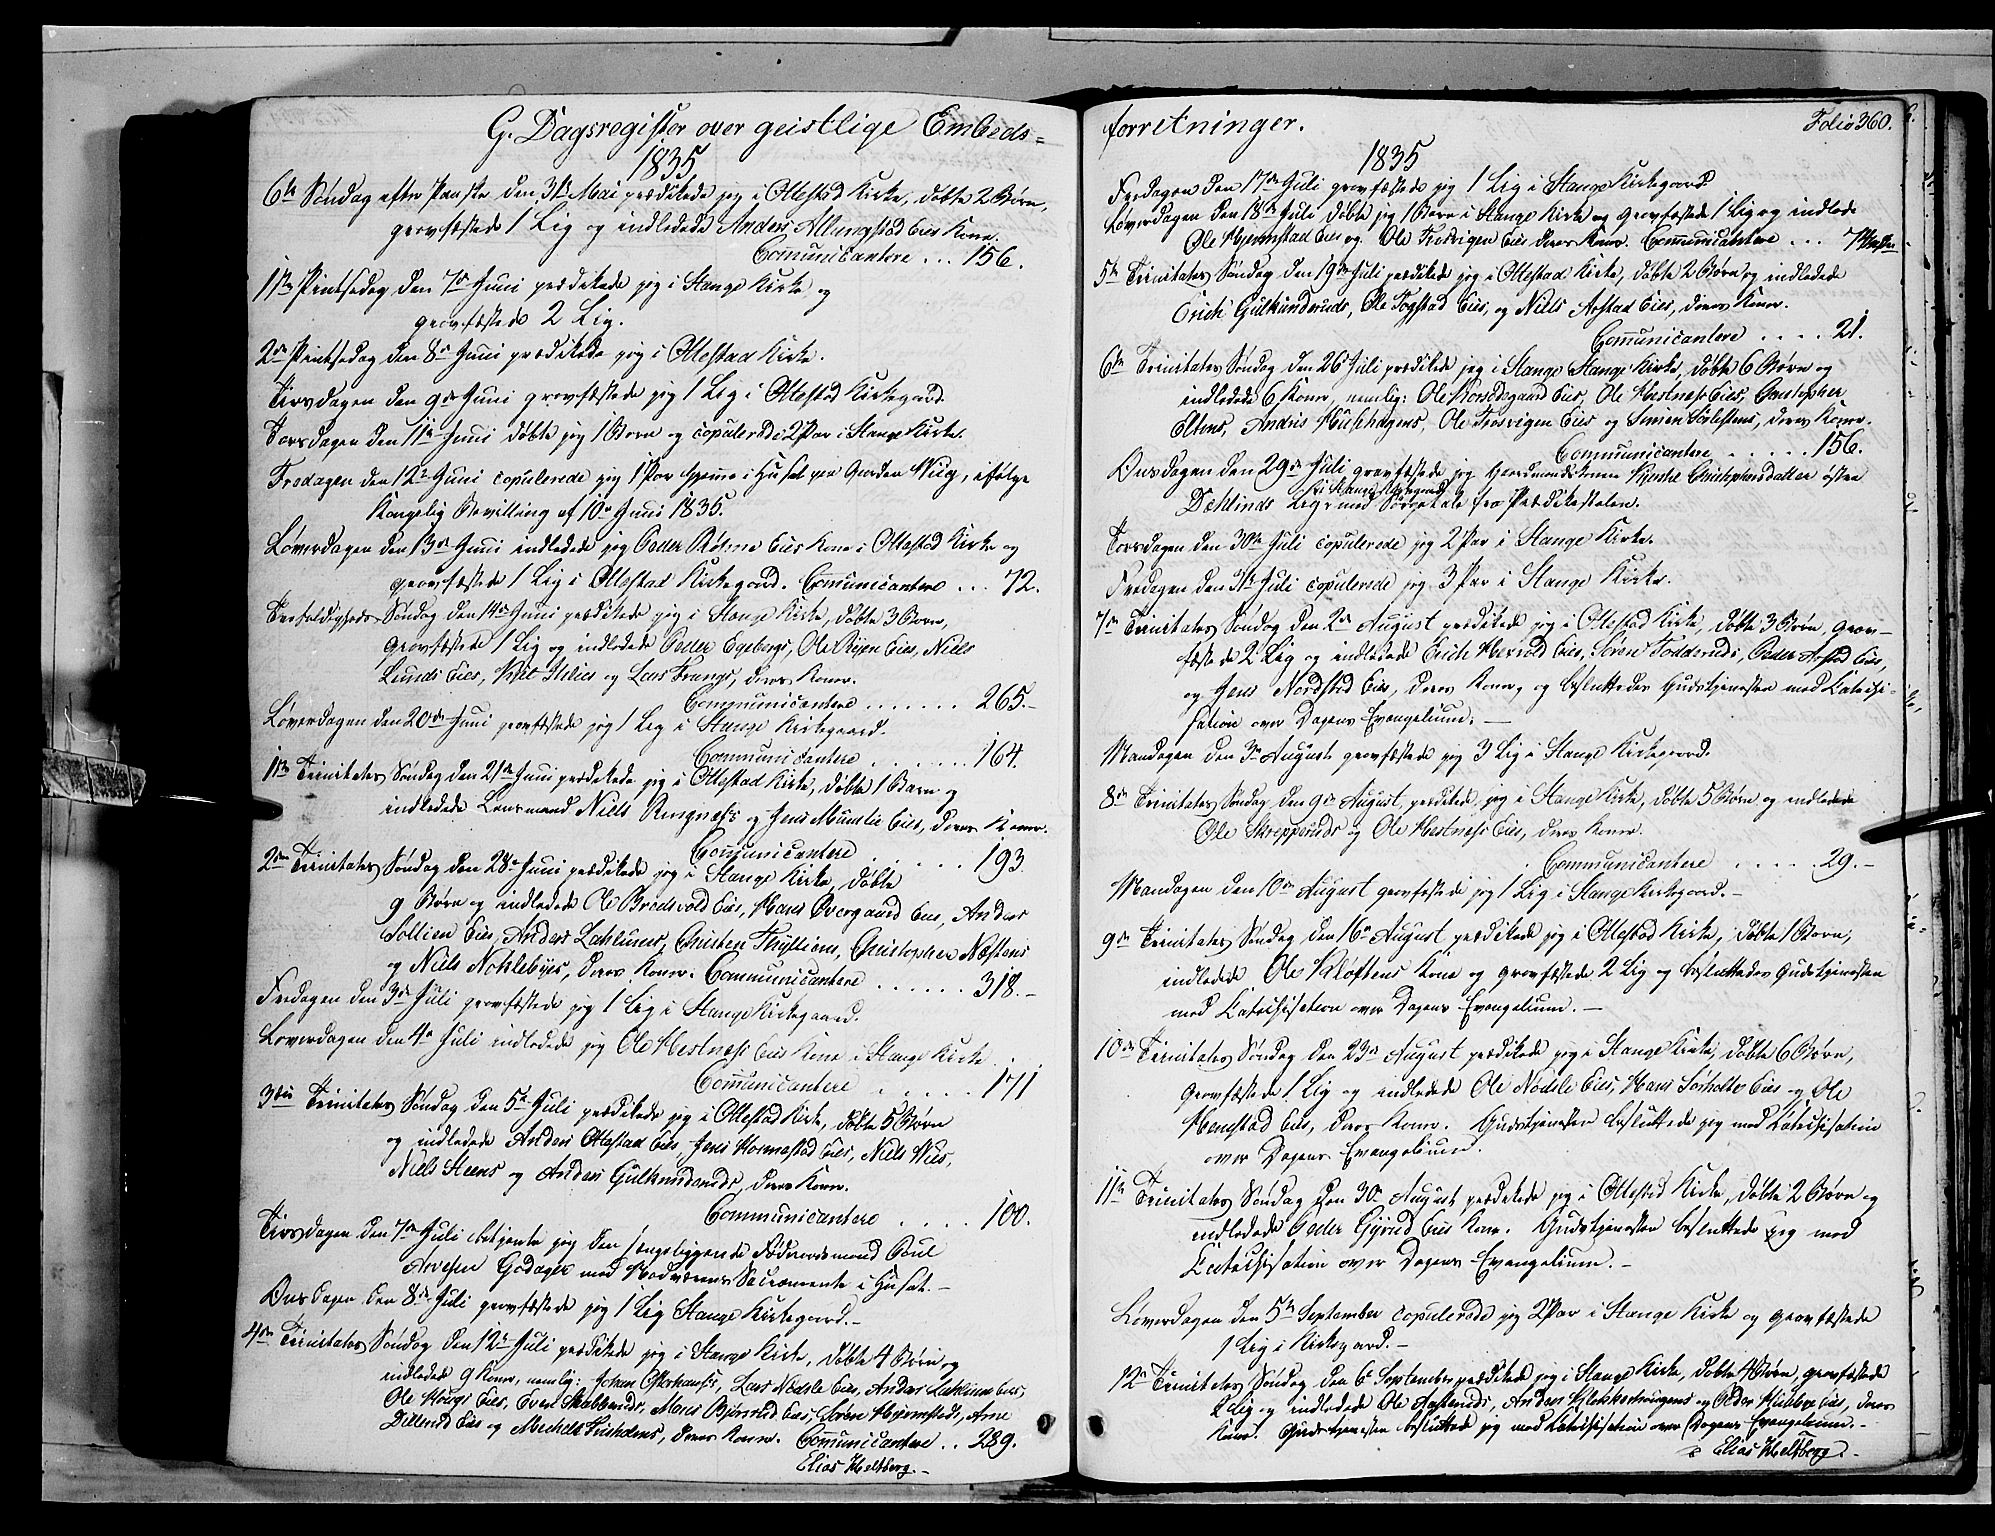 G. Dagsregister over geistlige Embeds=
1835
6te Søndag efter Paaske den 31te Mai prædikede jeg i Ottestad Kirke, døbte 2 Børn,
gravfæstede 1 Lig og indledede Anders Eies Kone.
Communicantere ... 156.
1ste Pintsedag den 7de Juni prædikede jeg i Stange Kirke og
gravfæstede 2 Lig.
2den Pintsedag den 8de Juni prædikede jeg i Ottestad Kirke.
Tirsdagen den 9de Juni gravfæstede jeg 1 Lig i Ottestad Kirkegaard.
Torsdagen den 11te Juni døbte jeg 1 Barn og copulerede 2 Par i Stange Kirke.
Fredagen den 12te Juni copulerede jeg 1 Par hjemme i Huset paa Gaarden Wiig, ifølge
Kongelig Bevilling af 10de Juni 1835.
Løverdagen den 13de Juni indledede jeg Peder Eies Kone i Ottestad Kirke og
gravfæstede 1 Lig i Ottestad Kirkegaard. Communicantere ... 72.
Trefoldigheds Søndag den 14de Juni prædikede jeg i Stange Kirke, døbte 3 Børn,
gravfæstede 1 Lig og indledede Peder Egebergs, Ole Eies, Niels
Lunds Eies, og Lars deres Koner.
Communicantere ....... 265.-
Løverdagen den 20de Juni gravfæstede jeg 1 Lig i Stange Kirkegaard.
Communicantere ....... 164.
1ste Trinitates Søndag den 21de Juni prædikede jeg i Ottestad Kirke, døbte 1 Barn og
indledede Lensmand Niels Ringnæss og Jens Eies, deres Koner.
Communicantere ...... 193.
2den Trinitates Søndag den 28de Juni prædikede jeg i Stange Kirke, døbte
9 Børn og indledede Ole Eies, Hans Overgaard Eies, Anders
Sollien Eies, Anders Christen Christopher Næstens
og Niels deres Koner. Communicantere ...... 318.-
Fredagen den 3de Juli gravfæstede jeg 1 Lig i Stange Kirkegaard.
Løverdagen den 4de Juli indledede jeg Ole Hestness Eies Kone i Stange Kirke
Communicantere ..... 171
3die Trinitates Søndag den 5te Juli prædikede jeg i Ottestad Kirke, døbte 5 Børn
og indledede Anders Ottestad Eies, Jens Eies, Niels
Niels Steens og Anders Gulkunderuds deres Koner.
Communicantere .... 100.
Tirsdagen den 7de Juli betjente jeg den sengeliggende Føderaadsmand Poul
Arvesen Godager med Nadverens Sacramente i Huset.-
Onsdagen den 8de Juli gravfæstede jeg 1 Lig Stange Kirkegaard.-
4de Trinitates Søndag den 12te Juli prædikede jeg i Stange Kirke, døbte 4 Børn og
indledede 9 Koner, nemlig: Johan Lars Nødsle Eies, Anders Eies,
Ole Hougs Eies, Even Hans Eies, Søren Hjermstads, Arne
Eies og deres Koner. Communicantere .. 289.
Elias Heltberg.-
forretninger.
Folio 360.
1835
Fredagen den 17de Juli gravfæstede jeg 1 Lig i Stange Kirkegaard.
Løverdagen den 18de Juli døbte jeg 1 Barn i Stange Kirke og gravfæstede 1 Lig og indledede
Ole Hjermstad Eies og Ole Frosvigen Eies deres Koner. Communicantere ...
5te Trinitates Søndag den 19de Juli prædikede jeg i Ottestad Kirke, døbte 2 Børn og indledede
Erich Gulkunderuds, Ole Eies, og Niels Arstad Eies, deres Koner.
Communicantere .... 21.
6te Trinitates Søndag den 26de Juli prædikede jeg i Stange Stange Kirke, døbte 6 Børn og
indledede 6 Koner, nemlig: Ole Korsødegaard Eies, Ole Hestness Eies, Christopher
Anders Ole Frosvigen Eies og Simen deres Koner.
Communicantere ..... 156.
Onsdagen den 29de Juli gravfæstede jeg Gaardmandskonen Christophersdatter østen
i Stange Kirkegaard
Dehlinds Lig med Sørgetale fra Prædikestolen.
Torsdagen den 30te Juli copulerede jeg 2 Par i Stange Kirke.
Fredagen den 31te Juli copulerede jeg 3 Par i Stange Kirke.
7de Trinitates Søndag den 2den August prædikede jeg i Ottestad Kirke, døbte 3 Børn, grav-
fæstede 2 Lig og indledede Erich Eies, Søren Fodderuds, Peder Arstad Eies,
og Jens Nordstad Eies, deres Koner, og besluttede Gudstjenesten med Catechi-
sation over Dagens Evangelium.-
Mandagen den 3de August gravfæstede jeg 3 Lig i Stange Kirkegaard.
8de Trinitates Søndag den 9de August prædikede jeg i Stange Kirke, døbte 5 Børn og indledede
Ole Skrepperuds og Ole Hestness Eies, deres Koner.
Communicantere ..... 29.-
Mandagen den 10de August gravfæstede jeg 1 Lig i Stange Kirkegaard.-
9de Trinitates Søndag den 16de August prædikede jeg i Ottestad Kirke, døbte 1 Barn,
indledede Ole Kloftens Kone og gravfæstede 2 Lig og besluttede Gudstjenesten
med Catechisation over Dagens Evangelium.-
10de Trinitates Søndag den 23de August prædikede jeg i Stange Kirke, døbte 6 Børn,
gravfæstede 1 Lig og indledede Ole Nødsle Eies, Hans Sørholte Eies og Ole
Hemstad Eies, deres Koner. Gudstjenesten besluttede jeg med Catechisation
over Dagens Evangelium.
11te Trinitates Søndag den 30te August prædikede jeg i Ottestad Kirke, døbte 2 Børn og
indledede Peder Gyrud Eies Kone. Gudstjenesten besluttede jeg med
Catechisation over Dagens Evangelium.-
Løverdagen den 5te September copulerede jeg 2 Par i Stange Kirke og gravfæstede
1 Lig i Kirkegaard.-
12te Trinitates Søndag den 6te September prædikede jeg i Stange Kirke, døbte 4 Børn, gravfæstede
2 Lig og indledede Ole Anders og Peder Eies, deres
Koner. Gudstjenesten besluttede jeg med Catechisation over Dagens Evangelium.-
Elias Heltberg.-